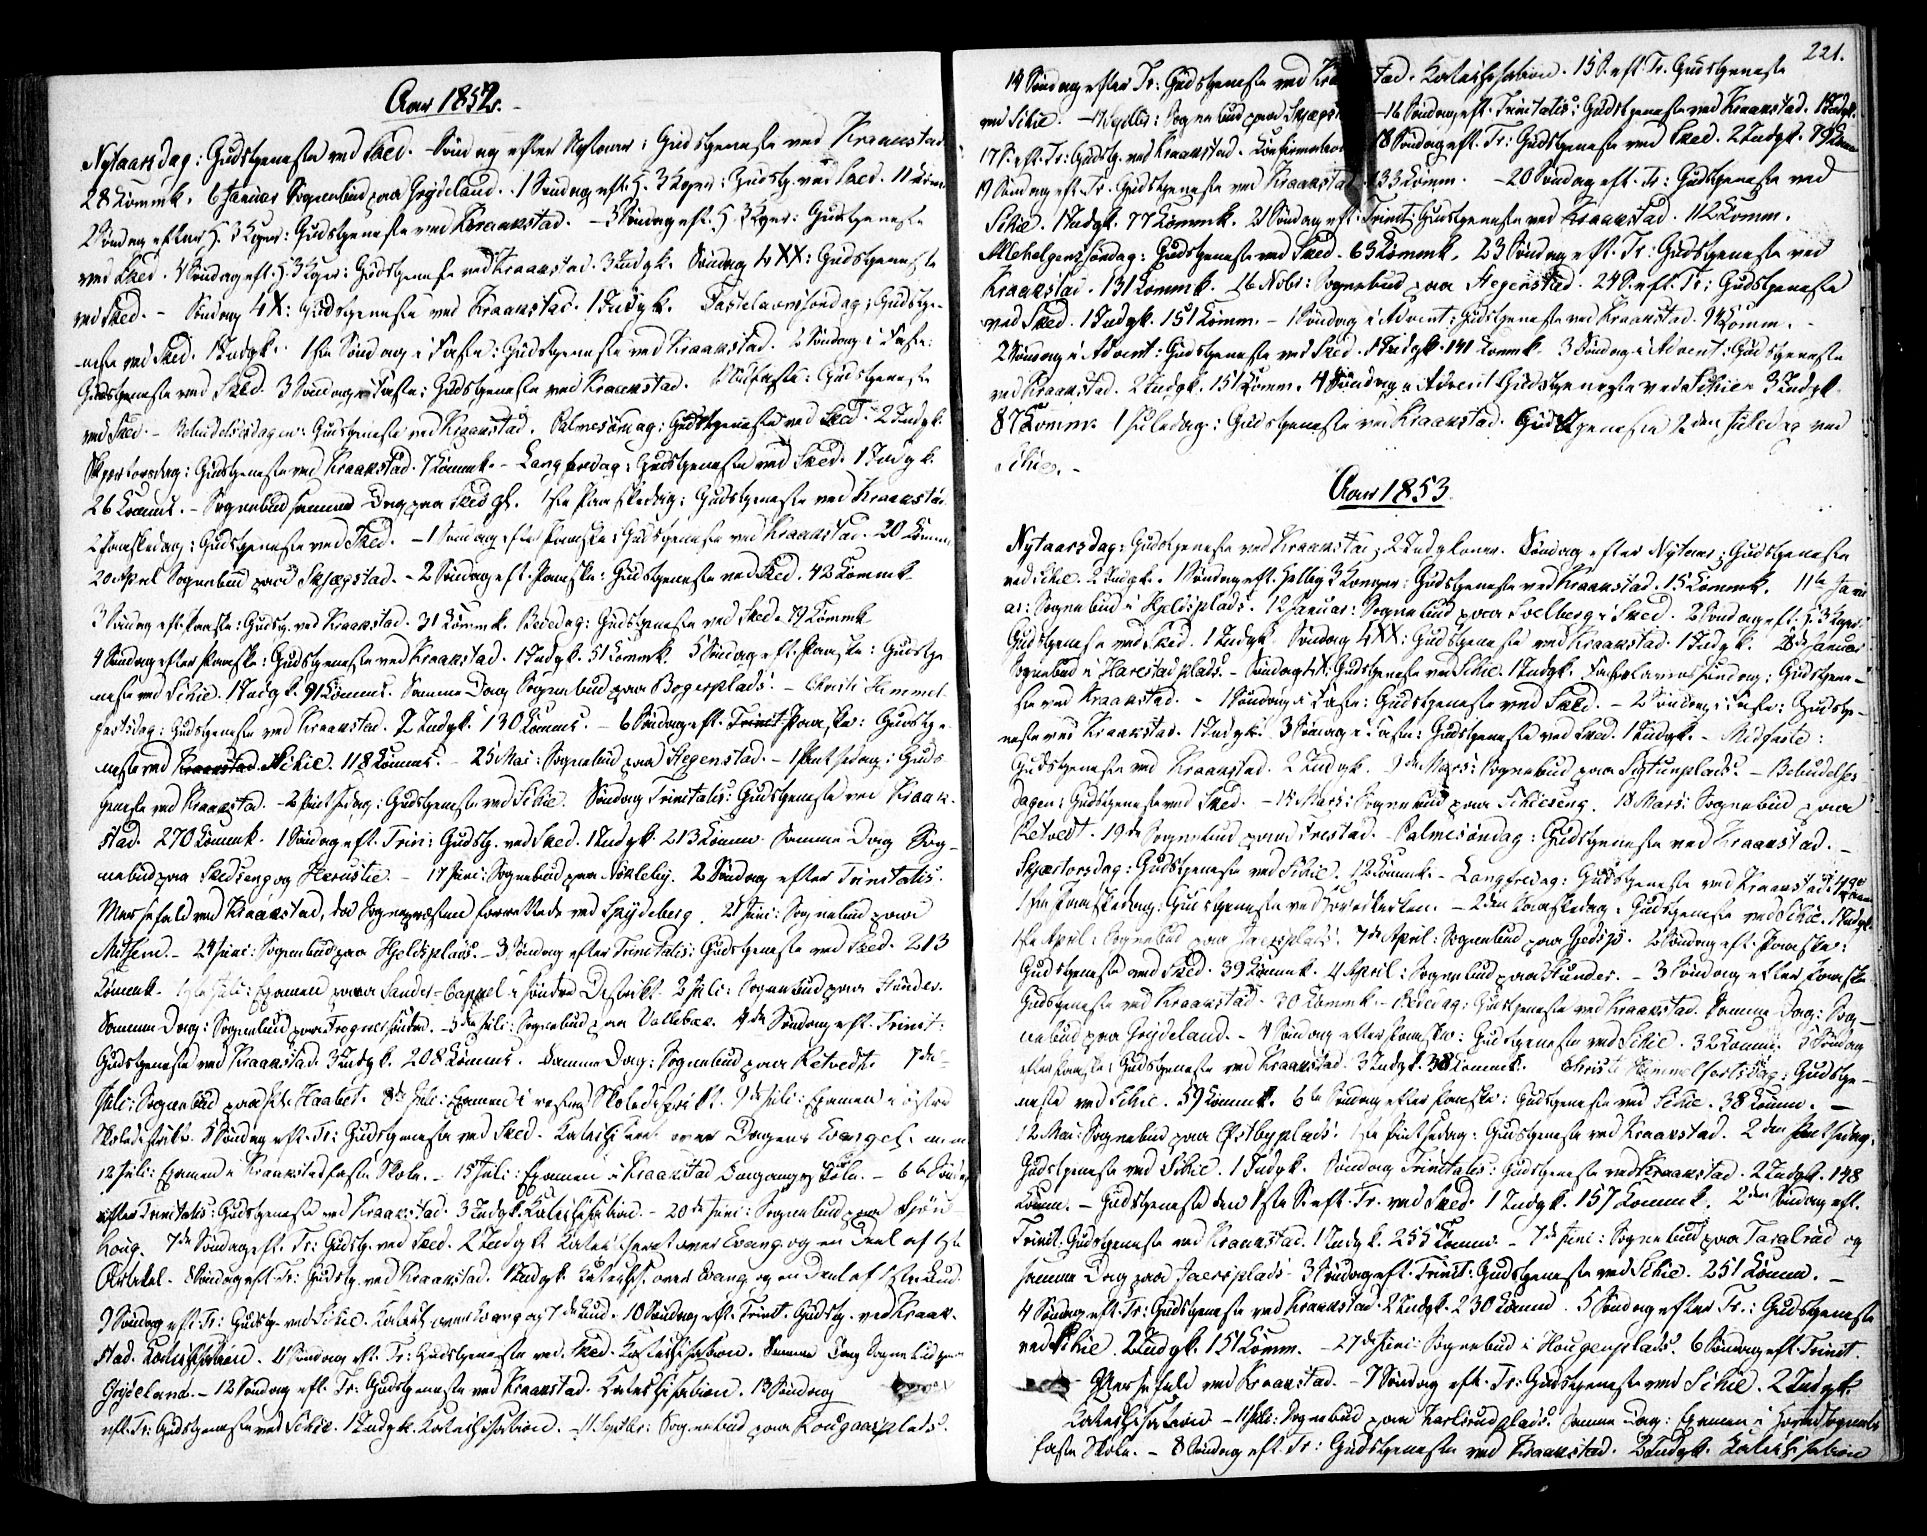 Aar 1852.
Nytaarsdag: Gudstjeneste ved Sked. Søndag efter Nytaar: Gudstjeneste ved Kraakstad
28 Kommk. 6 Januar Sognebud paa Gryteland. 1 Søndag eft. H. 3 Kger: Gudstj. ved Sked. 11 Komm
2 Søndag efter H. 3 Kger: Gudstjeneste ved Kraakstad. - 3 Søndag eft. H. 3 Kger: Gudstjeneste
ved Sked. 4 Søndag eft. H. 3 Kger: Gudstjeneste ved Kraakstad. 3 Indgk. Søndag LXX: Gudstjeneste
ved Sked. - Søndag LX: Gudstjeneste ved Kraakstad. 1 Indgk. Fastelavnssøndag: Gudstje-
neste ved Sked. 1 Indgk. 1ste Søndag i Faste: Gudstjeneste ved Kraakstad. 2 Søndag i Faste:
Gudstjeneste ved Sked. 3 Søndag i Faste: Gudstjeneste ved Kraakstad. Midfaste: Gudstjeneste
ved Sked. - Bebudelsesdagen: Gudstjeneste ved Kraakstad. Palmesøndag: Gudstjeneste ved Sked. 2 Indgk.
Skjærtorsdag: Gudstjeneste ved Kraakstad. 7 Kommk. - Langfredag: Gudstjeneste ved Sked. 1 Indgk.
26 Kommk. - Sognebud samme Dag paa Sked. 1ste Paaskedag: Gudstjeneste ved Kraakstad
2 Paaskedag: Gudstjeneste ved Sked. - 1 Søndag efter Paaske: Gudstjeneste ved Kraakstad. 20 Komm
20 April Sognebud paa Skjægstad. - 2 Søndag eft. Paaske: Gudstjeneste ved Sked. 42 Kommk.
3 Søndag eft. Paaske: Gudstj. ved Kraakstad. 31 Kommk. Bededag: Gudstjeneste ved Sked. 19 Kommk
4 Søndag efter Paaske: Gudstjeneste ved Kraakstad. 1 Indgk. 51 Kommk. 5 Søndag eft. Paaske: Gudstje
neste ved Schie. 1 Indgk. 91 Kommk. Samme Dag Sognebud paa Bogerplads. - Christi Himmel-
fartsdag: Gudstjeneste ved Kraakstad. 2 Indgk. 130 Kommk. - 6 Søndag eft. Trinit Paaske: Gudstje
neste ved Kraakstad Schie. 118 Kommk. - 25 Mai: Sognebud paa Hegenstad. - 1 Pintsedag: Guds
tjeneste ved Kraakstad. - 2 Pintsedag: Gudstjeneste ved Schie. Søndag Trinitatis: Gudstjeneste ved Kraak-
stad. 270 Kommk. 1 Søndag eft. Trin: Gudstj. ved Sked. 1 Indgk. 213 Komm. Samme Dag Sog-
nebud paa Skedseng og Herustie. - 17 Juni: Sognebud paa Nøkleby. 2 Søndag efter Trinitatis.
Messefald ved Kraakstad, da Sognepræsten forrettede ved Spydeberg. 21 Juni: Sognebud paa
Mithem. - 24 Juni: Sognebud paa Hjeldsplads. - 3 Søndag efter Trinitatis: Gudstjeneste ved Sked. 213
Kommk. 1ste Juli: Examen paa Sander-Cappel i Søndre Distrikt. 2 Juli: Sognebud paa Hunder.
Samme Dag: Sognebud paa Trogneshuder. - 3die Juli: Sognebud paa Vollebæk. 4de Søndag eft. Trinit:
Gudstjeneste ved Kraakstad. 3 Indgk. 208 Kommk. Samme Dag: Sognebud paa Retvedt. 7de
Juli: Sognebud paa Haabet. 8de Juli: Examen i vestre Skoledistrikt. 9de Juli: Examen i østre
Skoledistrikt. 5 Søndag eft. Tr: Gudstjeneste ved Sked. Katechiseret over Dagens Evangelium
12 Juli: Examen i Kraakstad faste Skole. - 15 Juli: Examen i Kraakstad Omgangs Skole. - 6te Søndag
efter Trinitatis: Gudstjeneste ved Kraakstad. 3 Indgk. Katechisation. - 20de Juni: Sognebud paa Bjørn
houg. 7de Søndag eft. Tr: Gudstj. ved Sked. 2 Indgk. Katechiseret over Evang. og en Deel af 1ste
Artikel. 8 Søndag eft. Tr: Gudstj. ved Kraakstad. 1 Indgk. Katechis. over Evang og en Deel af 1ste Bud.
9 Søndag eft. Tr: Gudstj. ved Schie. Katech. over Evang og 7de Bud. 10 Søndag eft. Trinit. Gudstj. ved Kraak-
stad. Katechisation. 11 Søndag eft. Tr: Gudstjeneste ved Sked. Katechisation. Samme Dag Sognebud paa
Gryteland. - 12 Søndag eft. Tr: Gudstjeneste ved Kraakstad. Katechisation. 13 Søndag
eft. Tr: Gudstjeneste ved Schie. 1 Indgk. Katechisation. - 11 Septbr: Sognebud paa Kongaasplads.
221.
14 Søndag efter Tr: Gudstjeneste ved Kraakstad. Katechisation. 15 S. eft Tr. Gudstjeneste
ved Schie. - Septbr: Sognebud paa Skjægst - 16 Søndag eft. Trinitatis: Gudstjeneste ved Kraakstad. 1 Indgk.
17 S. eft. Tr: Gudstj. ved Kraakstad. Konfirmation 18 Søndag eft. Tr: Gudstjeneste ved Sked. 2 Indgk. 79 Komm
19 Søndag eft. Tr. Gudstjeneste ved Kraakstad. 133 Komm. - 20 Søndag eft. Tr: Gudstjeneste ved
Schie. 1 Indgk. 77 Kommk. 21 Søndag eft. Trinit: Gudstjeneste ved Kraakstad. 112 Komm.
Allehelgensøndag: Gudstjeneste ved Sked. 63 Kommk. 23 Søndag eft. Tr: Gudstjeneste ved
Kraakstad. 131 Kommk. 16 Novbr: Sognebud paa Hegenstad. 24 S. eft. Tr: Gudstjeneste
ved Sked. 1 Indgk. 151 Komm. - 1 Søndag i Advent: Gudstjeneste ved Kraakstad. 94 Komm. -
2 Søndag i Advent: Gudstjeneste ved Sked. 1 Indgk. 141 Kommk. 3 Søndag i Advent: Gudstjeneste
ved Kraakstad. 2 Indgk. 151 Komm. 4 Søndag i Advent Gudstjeneste ved Schie. 3 Indgk.
87 Komm. 1 Juledag: Gudstjeneste ved Kraakstad. Gudstjeneste 2den Juledag ved
Schie. -
Aar 1853.
Nytaarsdag: Gudstjeneste ved Kraakstad; 2 Indgkoner. Søndag efter Nytaar: Gudstjeneste
ved Schie. 2 Indgk. 1 Søndag eft. Hellig 3 Konger: Gudstjeneste ved Kraakstad. 15 Kommk. 11te Janu
ar: Sognebud i Hjeldsplads. 12 Januar: Sognebud paa Soelberg i Sked. 2 Søndag eft. H. 3 Kger.
Gudstjeneste ved Sked. 1 Indgk. Søndag LXX: Gudstjeneste ved Kraakstad. 1 Indgk. 28de Januar
Sognebud i Harestadplads. - Søndag LX: Gudstjeneste ved Schie. 1 Indgk. Fastelavnssøndag: Gudstjene-
ste ved Kraakstad. - 1 Søndag i Faste: Gudstjeneste ved Sked. - 2 Søndag i Faste: Gudstje-
neste ved Kraakstad. 1 Indgk. 3 Søndag i Faste: Gudstjeneste ved Sked. 1 Indgk. - Midfaste:
Gudstjeneste ved Kraakstad. 2 Indgk. 9de Marts: Sognebud paa Sigtunplads. - Bebudelses
dagen: Gudstjeneste ved Sked. - 15 Marts: Sognebud paa Schieseng. 18 Marts: Sognebud paa
Retvedt. 19de Sognebud paa Frestad. - Palmesøndag: Gudstjeneste ved Kraakstad. -
Skjærtorsdag: Gudstjeneste ved Schie. 12 Kommk. - Langfredag: Gudstjeneste ved Kraakstad.
1ste Paaskedag: Gudstjeneste ved Hovedkirken. - 2den Paaskedag: Gudstjeneste ved Schie. 1 Indgk.
1ste April: Sognebud paa Jaersplads. 7de April: Sognebud paa Gjedsjø. 2 Søndag eft. Paaske:
Gudstjeneste ved Sked. 39 Kommk. 4 April: Sognebud paa Hunder. - 3 Søndag efter Paaske
Gudstjeneste ved Kraakstad. 30 Kommk. - Bededag: Gudstjeneste ved Kraakstad. Samme Dag: Sog-
nebud paa Gryteland. - 4 Søndag efter Paaske: Gudstjeneste ved Schie. 32 Komm. 5 Søndag
efter Paaske: Gudstjeneste ved Kraakstad. 3 Indgk. 38 Kommk. Christi Himmelfartsdag: Gudstje-
neste ved Schie. 59 Kommk. 6te Søndag efter Paaske: Gudstjeneste ved Schie. 38 Komm. -
12 Mai: Sognebud paa Østbyplads. 1ste Pintsedag: Gudstjeneste ved Kraakstad. 2den Pintsedag:
Gudstjeneste ved Schie. 1 Indgk. Søndag Trinitatis: Gudstjeneste ved Kraakstad. 2 Indgk. 148
Komm. - Gudstjeneste den 1ste S. eft. Tr. ved Sked. 1 Indgk. 157 Kommk. 2den Søndag eft.
Trinit. Gudstjeneste ved Kraakstad. 1 Indgk. 255 Komm. - 7de Juni: Sognebud paa Taralrud og
samme Dag paa Jaersplads. 3 Søndag eft. Trinit: Gudstjeneste ved Schie. 251 Komm. -
4 Søndag eft. Tr: Gudstjeneste ved Kraakstad. 2 Indgk. 230 Komm. 5 Søndag efter Tr.: Gudstjeneste
ved Schie. 2 Indgk. 151 Komm. - 27de Juni: Sognebud i Hougenplads. 6 Søndag eft. Trinit.
Messefald ved Kraakstad. - 7 Søndag eft. Tr: Gudstjeneste ved Schie. 2 Indgk.
Katechisation - 11 Juli: Sognebud paa Karlsrudplads. Samme Dag: Examen i Hovedsognets
faste Skole. - 8 Søndag eft. Tr: Gudstjeneste ved Kraakstad. 2 Indgk. Katechisation